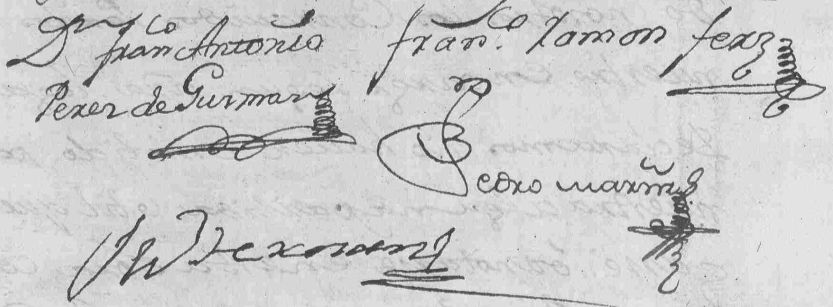 Dn franco Antonio
Perez de Gusman
franco. Ramon ferz
Pedro marin